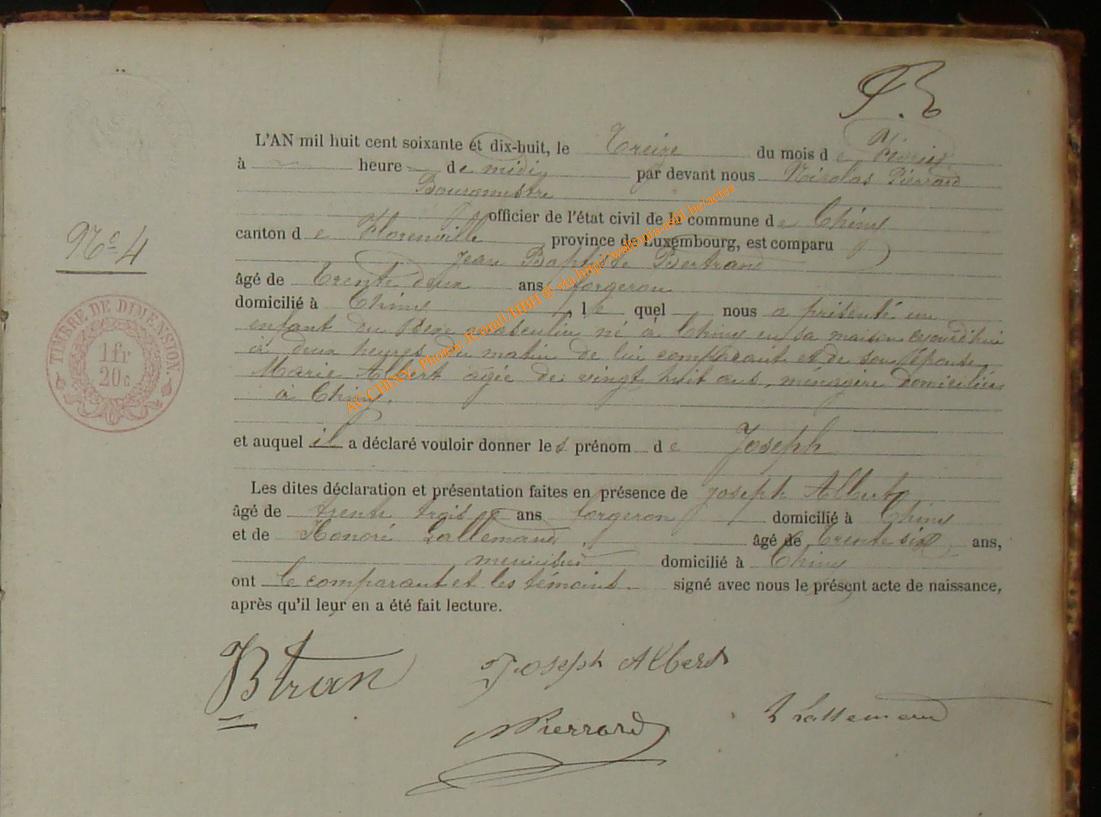 L'AN mil huit cent soixante et dix-huit, le Treize du mois de Février
à heure de midi par devant nous Nicolas Pierrard
Bourgmestre
officier de l'état civil de la commune de Chiny
canton de Florenville province de Luxembourg, est comparu
Jean Baptiste Bertrand
N° 4
âgé de trente deux ans forgeron
domicilié à Chiny, lequel nous a présenté un
enfant du sexe masculin né à Chiny en sa maison
à deux heures du matin de lui comparant et de son épouse
Marie Albert agée de vingt huit ans, ménagère domiciliés
à Chiny.
TIMBRE DE DIMENSION
1 fr
20 c
et auquel il a déclaré vouloir donner les prénom de Joseph
Les dites déclaration et présentation faites en présence de Joseph Albert
âgé de trente trois ans forgeron domicilié à Chiny
et de Honoré Lallemand âgé de trente six ans,
menuisier domicilié à Chiny
ont le comparant et les témoins signé avec nous le présent acte de naissance,
après qu'il leur en a été fait lecture.
Btran Joseph Albert
NPierrard Lallemand